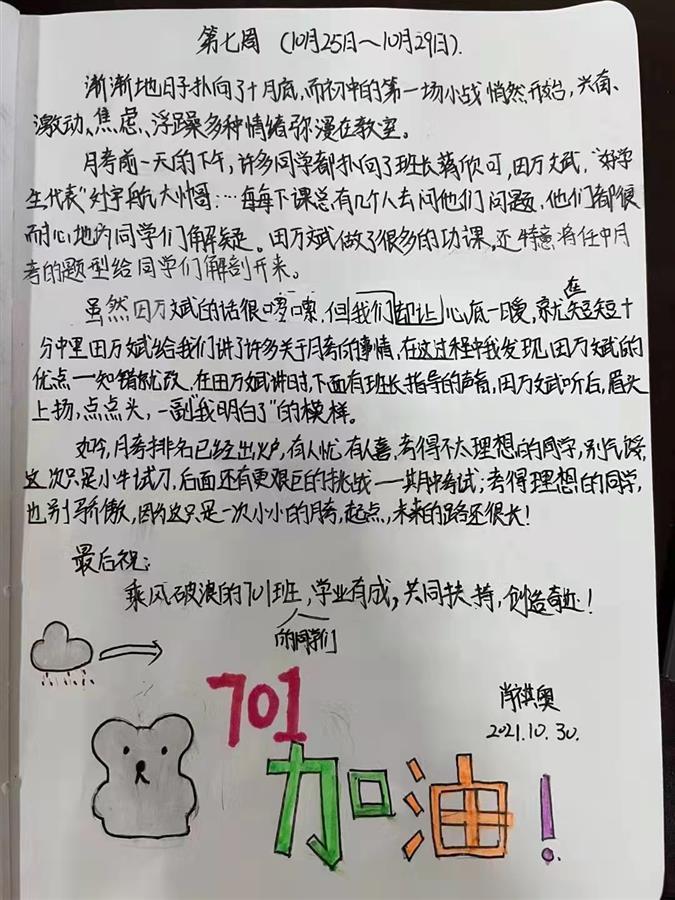 第七周 (10月25日~10月29日).
渐渐地日子扑向了十月底,而初中的第一场小战悄然开始,兴奋、
激动、焦虑、浮躁多种情绪弥漫在教室。
月考前一天的下午,许多同学都扑向了班长蒋欣可,田万斌,“好学
生代表”好宇航大帅哥……每每下课总有几个人去问他们问题,他们都很
耐心地为同学们解疑。田万斌做了很多的功课,还特意将往年月
考的题型给同学们解剖开来。
虽然田万斌的话很啰嗦,但我们却让心底一暖,就在短短十
分中里田万斌给我们讲了许多关于月考的事情,在这过程中我发现田万斌的
优点——知错就改,在田万斌讲时,下面有班长指导的声音,田万斌听后,眉头
上扬,点点头,一副“我明白了”的模样。
如今,月考排名已经出炉,有人忧有人喜,考得不太理想的同学,别气馁,
这次只是小牛试刀,后面还有更艰巨的挑战——期中考试;考得理想的同学,
也别骄傲,因为这只是一次小小的月考,起点,未来的路还很长!
最后祝:
乘风破浪的701班的同学们,学业有成,共同扶持,创造奇迹!
701
肖祺奥
2021.10.30.
加油!